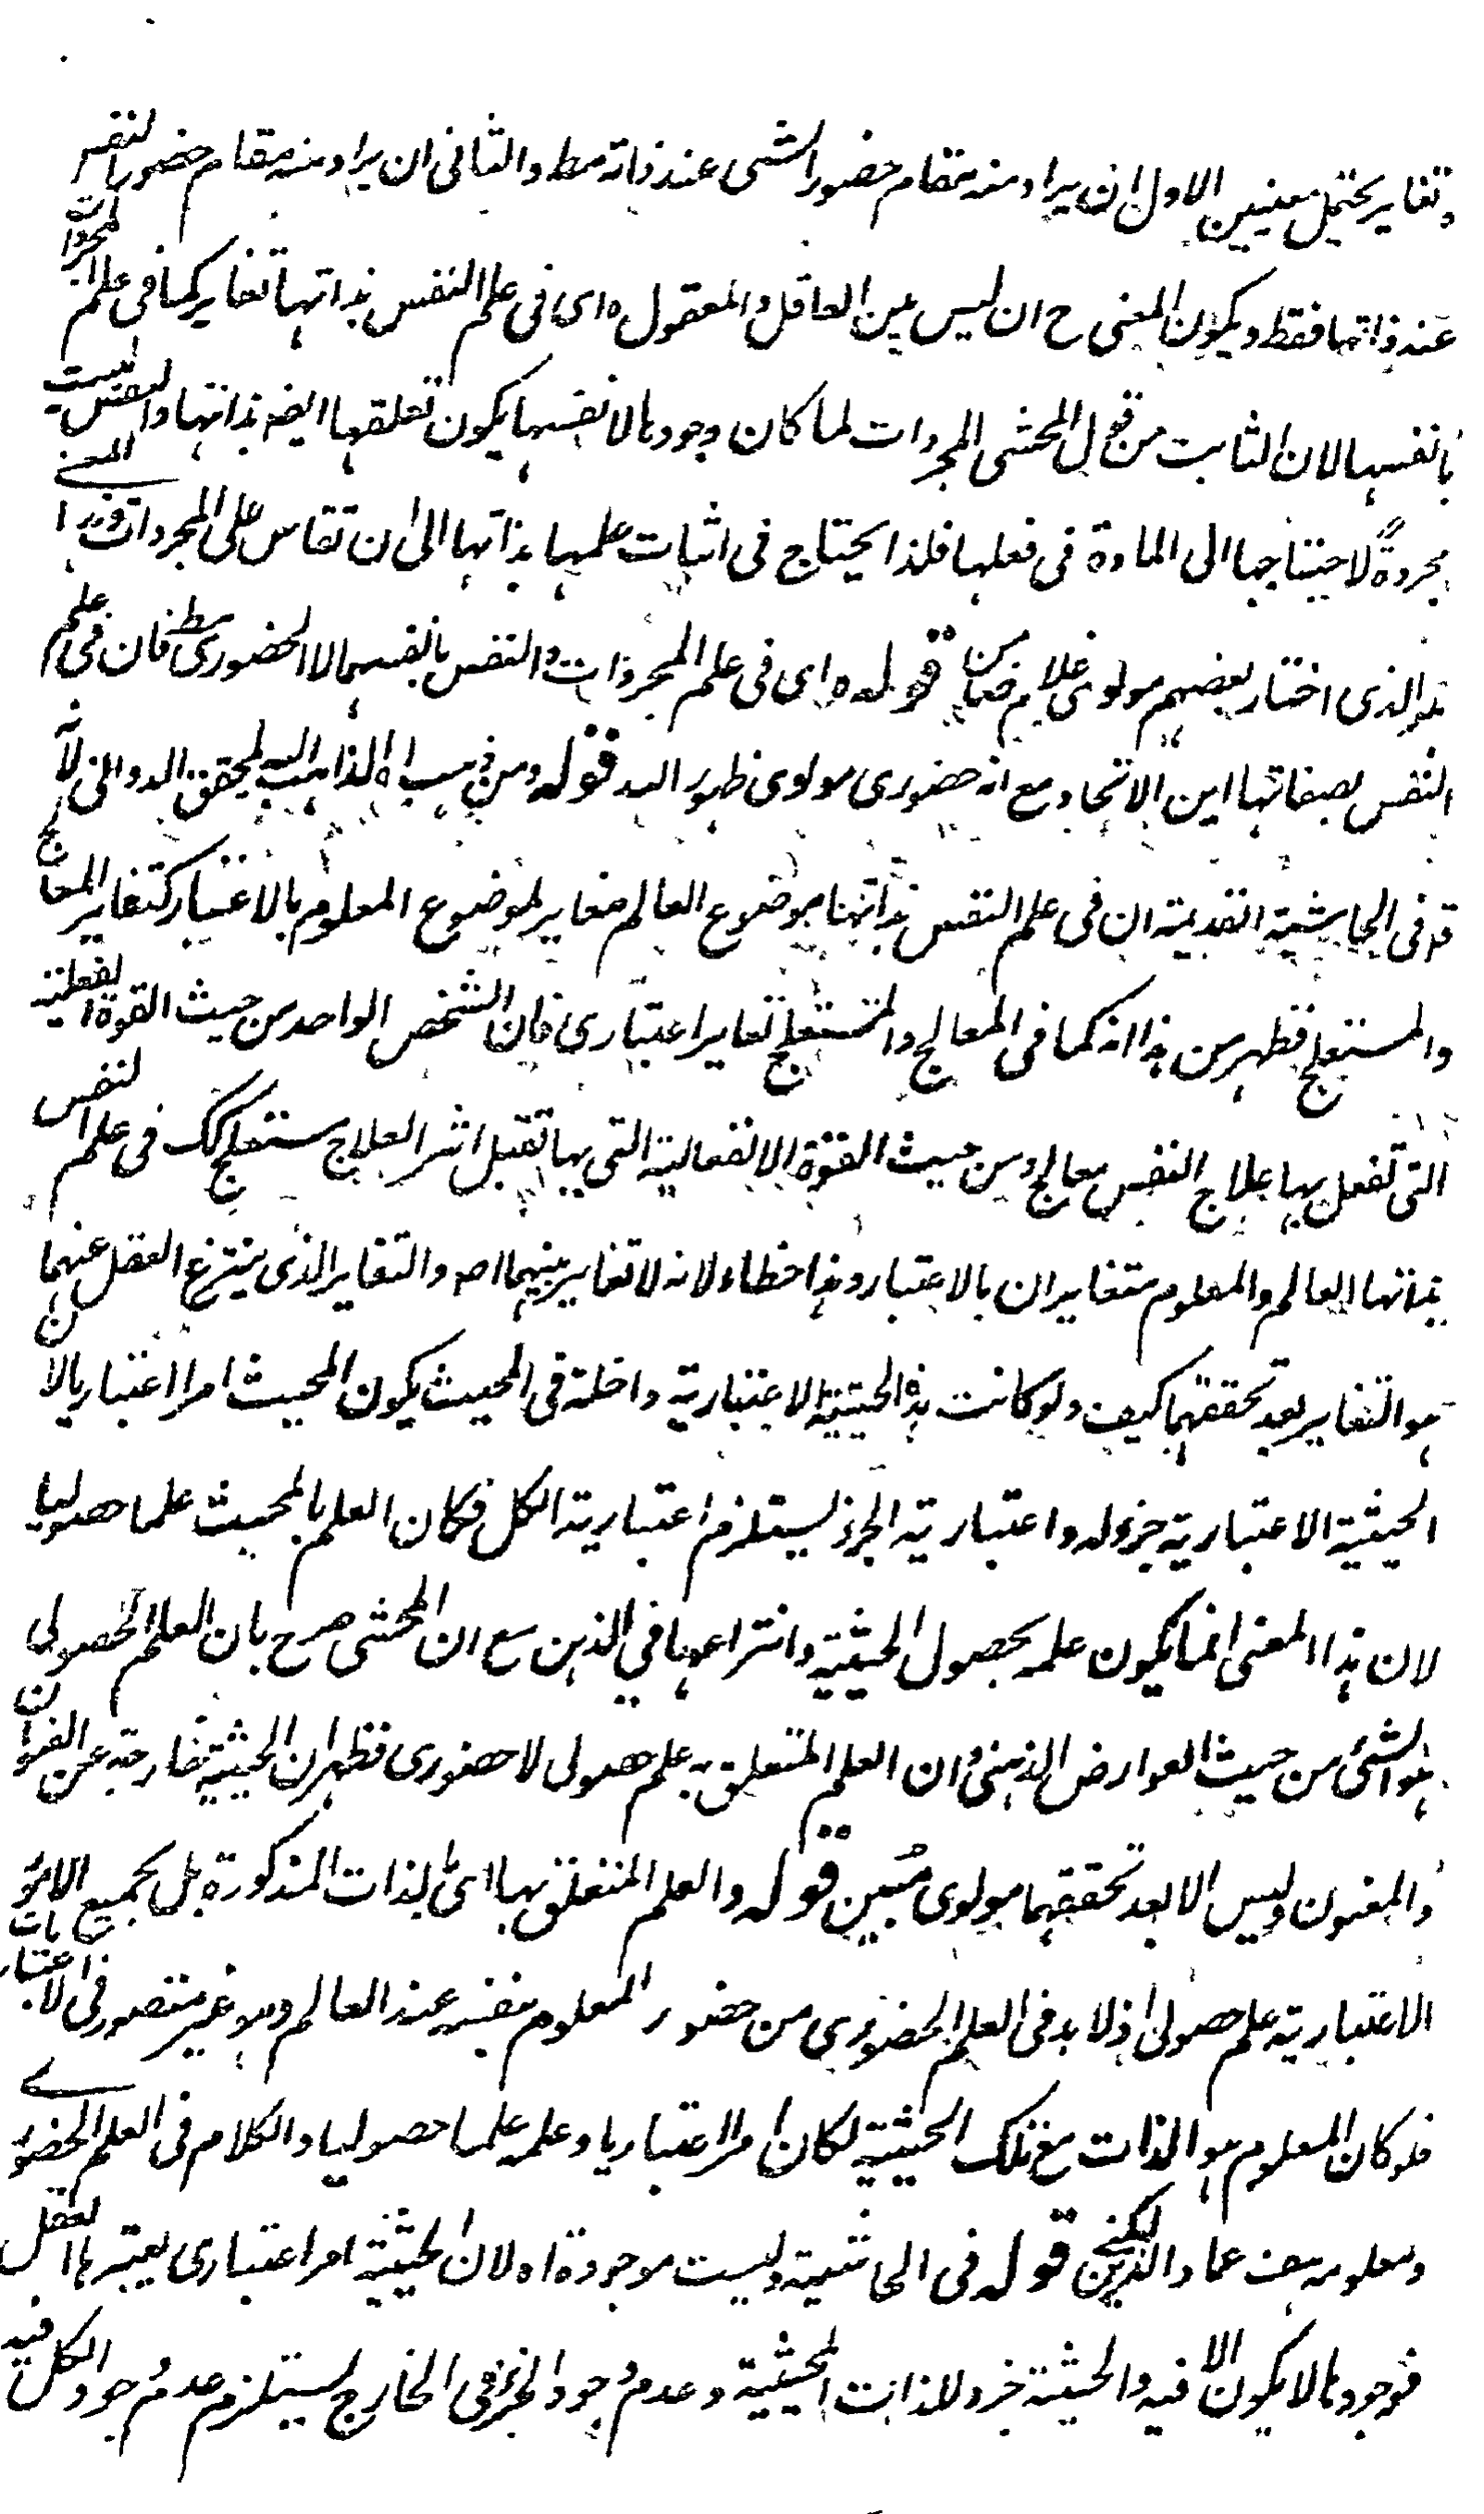 وتغاير يحتمل معنيين الاول ان يراد منه مقام حضور الشى عند ذاته مط والثانى ان يراد منه مقام حضور النفس
عند ذاتها فقط ويكون المعنى ح ان ليس بين العاقل والمعقول ه اى فى علم النفس بذاتها تغاير كما فى علم المجردات
بانفسها لان الثابت من قول المحشى المجردات لما كان وجودها لانفسها يكون تعلقها ايضه بذاتها والنفس ليست
مجردةً لاحتياجها الى المادة فى فعلها فلذا يحتاج فى اثبات علمها بذاتها الى ان تقاس على المجردات وهذا المعنى
هو الذى اختار بعضهم مولوى غلام ضامن قوله ه اى فى علم المجردات والنفس بانفسهما لا الحضورى مط فان فى علم
النفس بصفاتها اين الاتحاد مع انه حضورى مولوى ظهور الله قوله ومن ذهب اه الذاهب اليه المحقق الدوانى لانه
قد فى الحاشية القديمة ان فى علم النفس بذاتها موضوع العالم مغاير لموضوع المعلوم بالاعتبار كتغاير المعالج
والمستعلج فظهر من هذا انه كما فى المعالج والمستعلج تغاير اعتبارى فان الشخص الواحد من حيث القوة الفعلية
التى تفعل بها علاج النفس معالج ومن حيث القوة الانفعالية التى بها تقبل اثر العلاج مستعلج كك فى علم النفس
بذاتها العالم والمعلوم متغايران بالاعتبار وهذا خطاء لانه لا تغاير بينهما اصه والتغاير الذى ينتزع العقل عنهما
هو التغاير بعد تحققهما كيف ولو كانت هذه الحيثية الاعتبارية داخلة فى المحيث يكون المحيث امرا اعتباريا لان
الحيثية الاعتبارية جزء له واعتبارية الجزء يستلزم اعتبارية الكل فكان العلم بالمحيث علما حصوليا
لان هذا المعنى انما يكون علمه بحصول الحيثية وانتزاعها فى الذهن مع ان المحشى صرح بان العلم الحصولى
هو الشئ من حيث العوارض الذهنى وان العلم المتعلق به علم حصولى لا حضورى فظهر ان الحيثية خارجة عن العنوان
والمعنون وليس الا بعد تحققهما مولوى مُبين قوله والعلم المتعلق بها اى بالذات المذكورة بل بجميع الامور
الاعتبارية علم حصولى اذ لا بد فى العلم الحضورى من حضور المعلوم بنفسه عند العالم وهو غير متصور فى الاعتباريات
فلو كان المعلوم هو الذات مع تلك الحيثية لكان امرا اعتباريا وعلمه علما حصوليا والكلام فى العلم الحضورى
ومعلومه هف عماد الدين لبكنى قوله فى الحاشية وليست موجودة اه لان الحيثية امر اعتبارى يعتبرها العقل
فوجودها لا يكون الا فيه والحيثية جزء للذات المحيثية وعدم وجود الجزء فى الخارج يستلزم عدم وجود الكل فيه